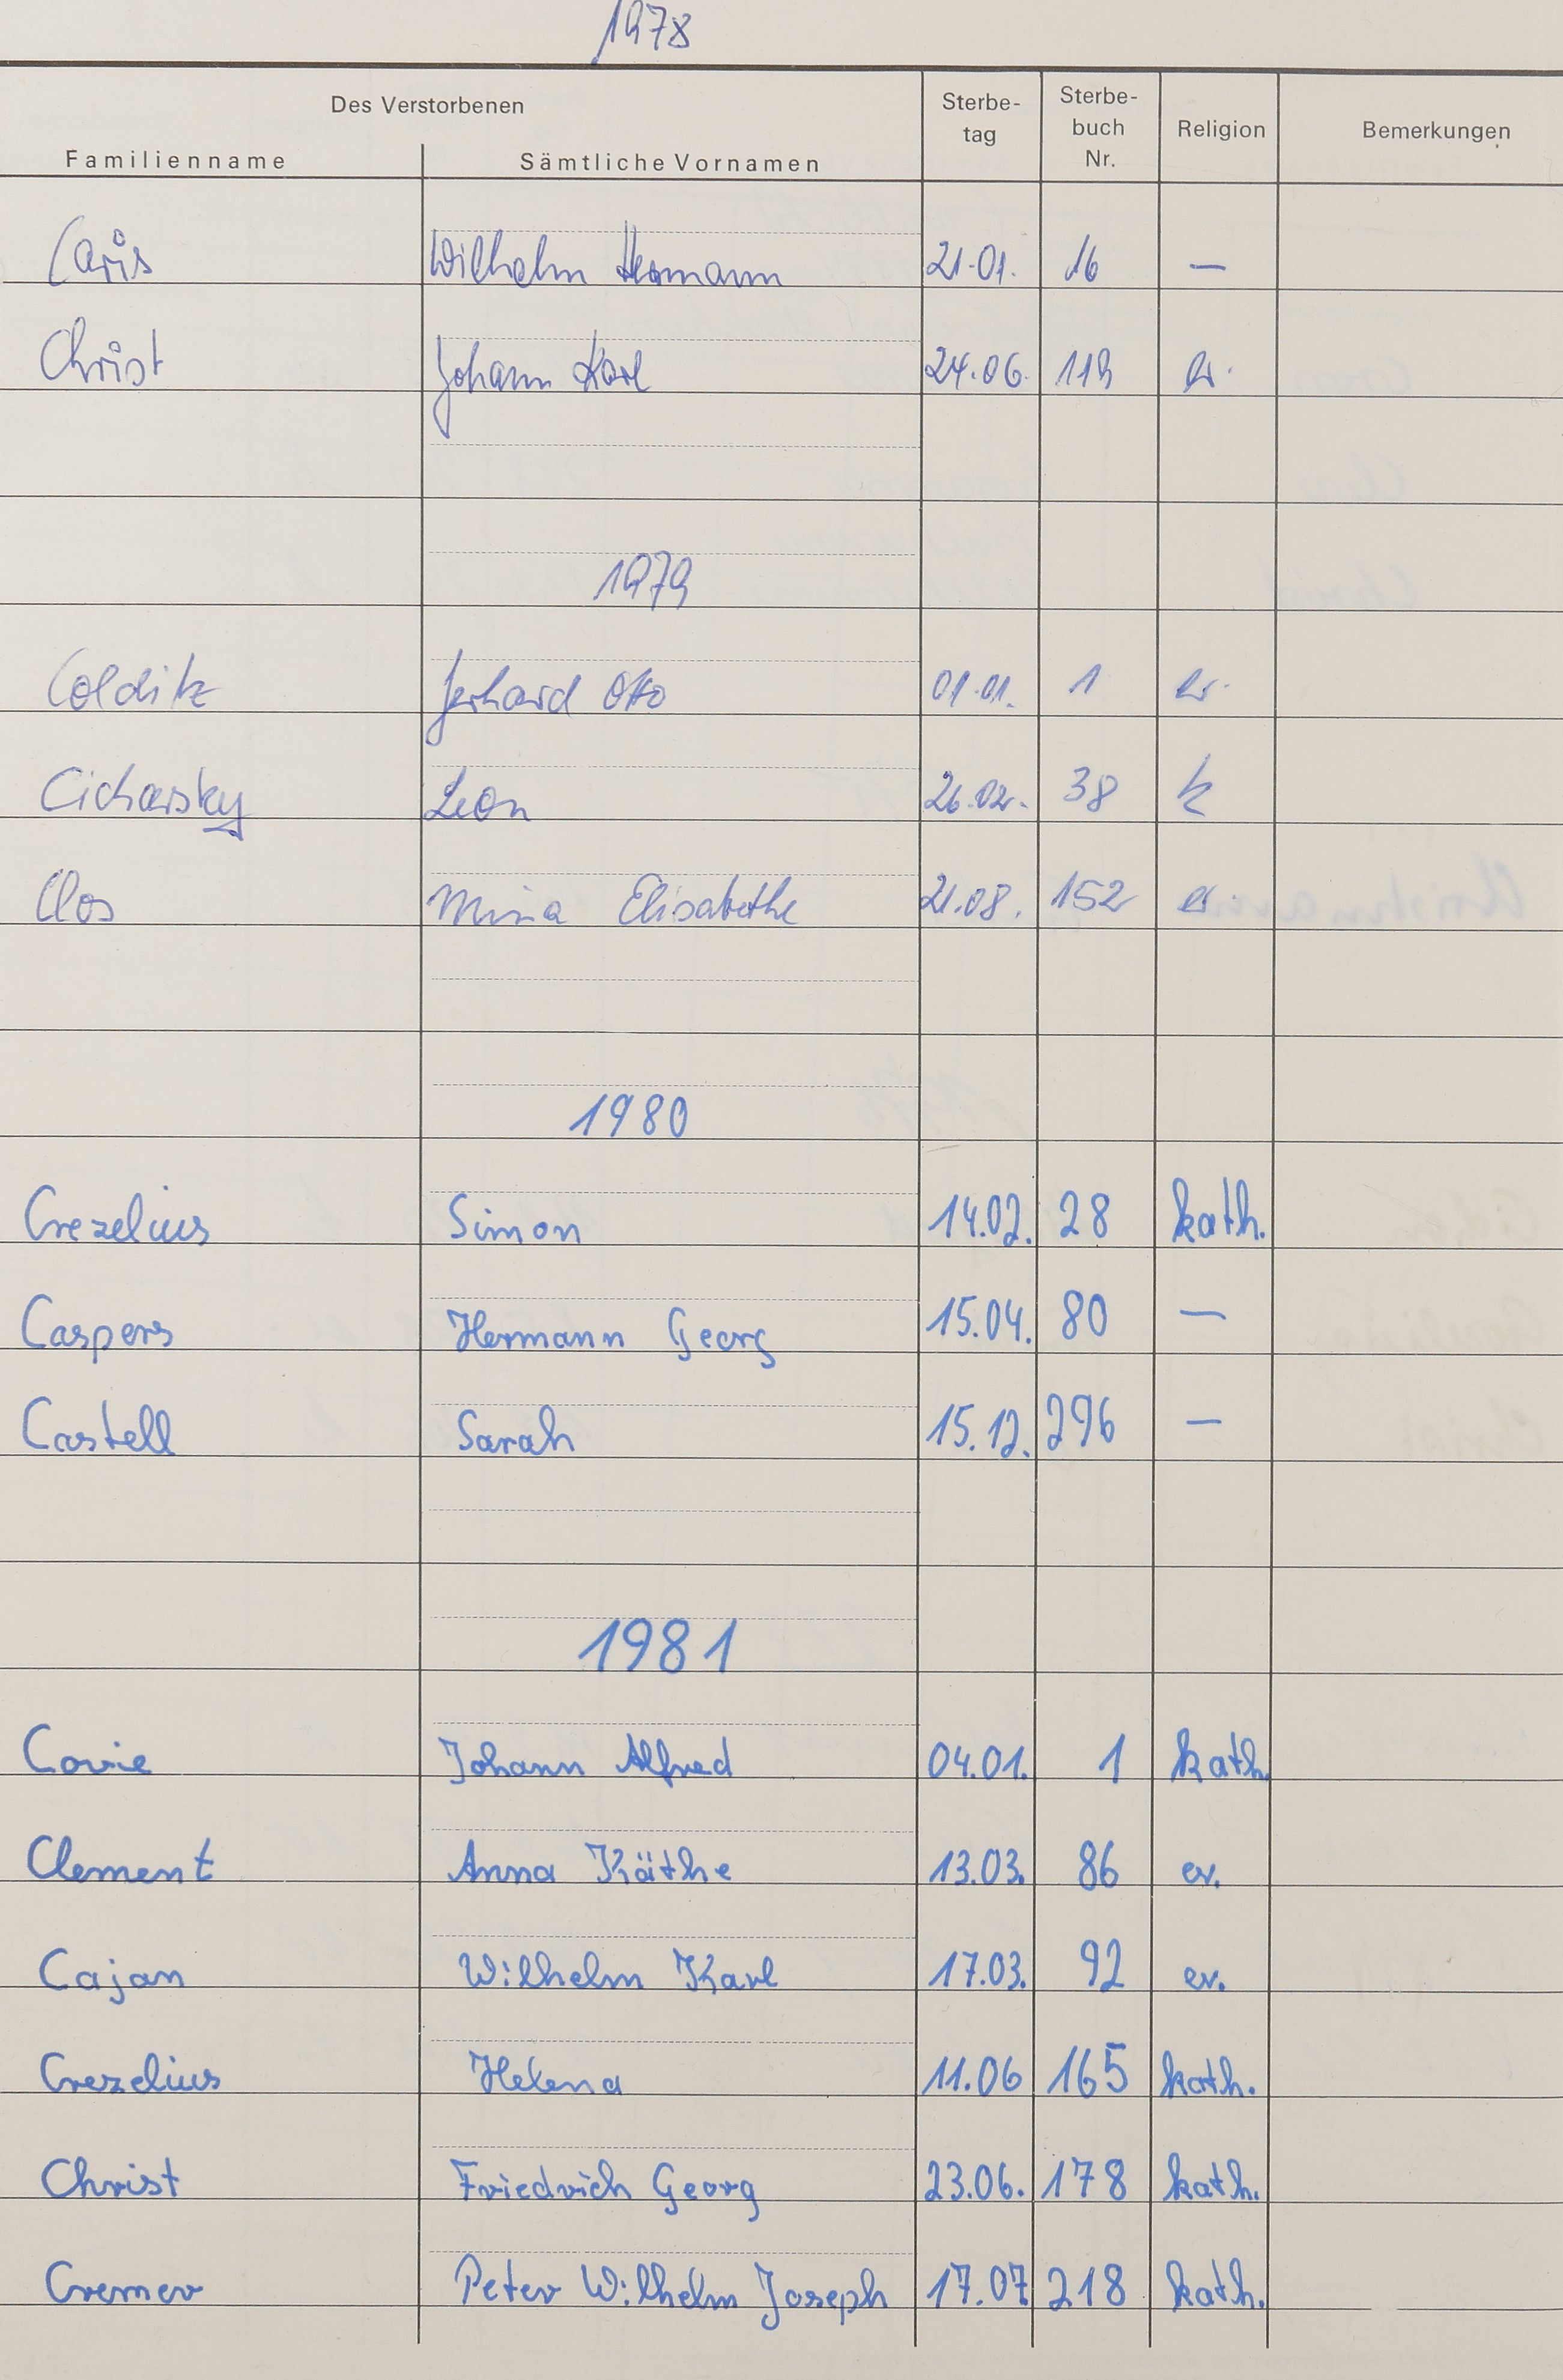 1978
Des Verstorbenen
Familienname Sämtliche Vornamen Sterbe- tag Sterbe- buch Nr. Religion Bemerkungen
Caris Wilhelm Hermann 21.01. 16 —
Christ Johann Karl 24.06. 119 ev.
1979
Colditz Gerhard Otto 01.01. 1 ev.
Cicharsky Leon 26.02. 38 k
Clos Mina Elisabethe 21.08. 152 ev
1980
Crezelius Simon 14.02. 28 kath.
Caspers Hermann Georg 15.04. 80 —
Castell Sarah 15.12. 296 —
1981
Covie Johann Alfred 04.01. 1 kath.
Clement Anna Käthe 13.03. 86 ev.
Cajan Wilhelm Karl 17.03. 92 ev.
Crezelius Helena 11.06 165 kath.
Christ Friedrich Georg 23.06. 178 kath.
Cremer Peter Wilhelm Joseph 17.07 218 kath.